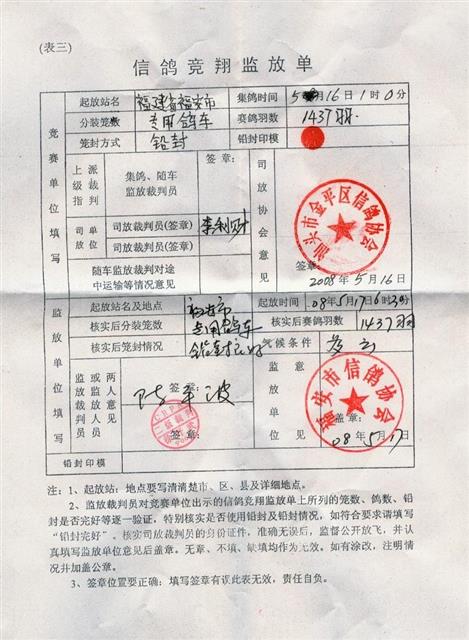 (表三)
信鸽竞翔监放单
竞赛单位填写
起放站名 福建省福安市 集鸽时间 5月16日1时0分
分装笼数 专用鸽车 赛鸽羽数 1437羽
笼封方式 铅封 铅封印模
上级指派裁判 集鸽、随车监放裁判员 签章:
司放单位 司放裁判员(签章) 李利财
司放裁判员(签章)
随车监放裁判对途中运输等情况意见
司放协会意见
汕头市金平区信鸽协会
签章:
2008年5月16日
监放单位填写
起放站名及地点 福安市 起放时间 08年5月17日6时30分
核实后分装笼数 专用鸽车 核实后赛鸽羽数 1437羽
核实后笼封情况 铅封完好 气候条件 多云
监放裁判员或两人监放人员意见 签章:
签章:
监放单位意见
福安市信鸽协会
盖章:
08年5月17日
铅封印模
注:1、起放站:地点要写清清楚市、区、县及详细地点。
2、监放裁判员对竞赛单位出示的信鸽竞翔监放单上所列的笼数、鸽数、铅
封是否完好等逐一验证,特别核实是否使用铅封及铅封情况,如符合要求请填写
“铅封完好”、核实司放裁判员的身份证件,准确无误后,监督公开放飞,并认
真填写监放单位意见后盖章。无章、不填、缺填均作为无效。如有涂改,注明情
况并加盖公章。
3、签章位置要正确:填写签章有误此表无效,责任自负。